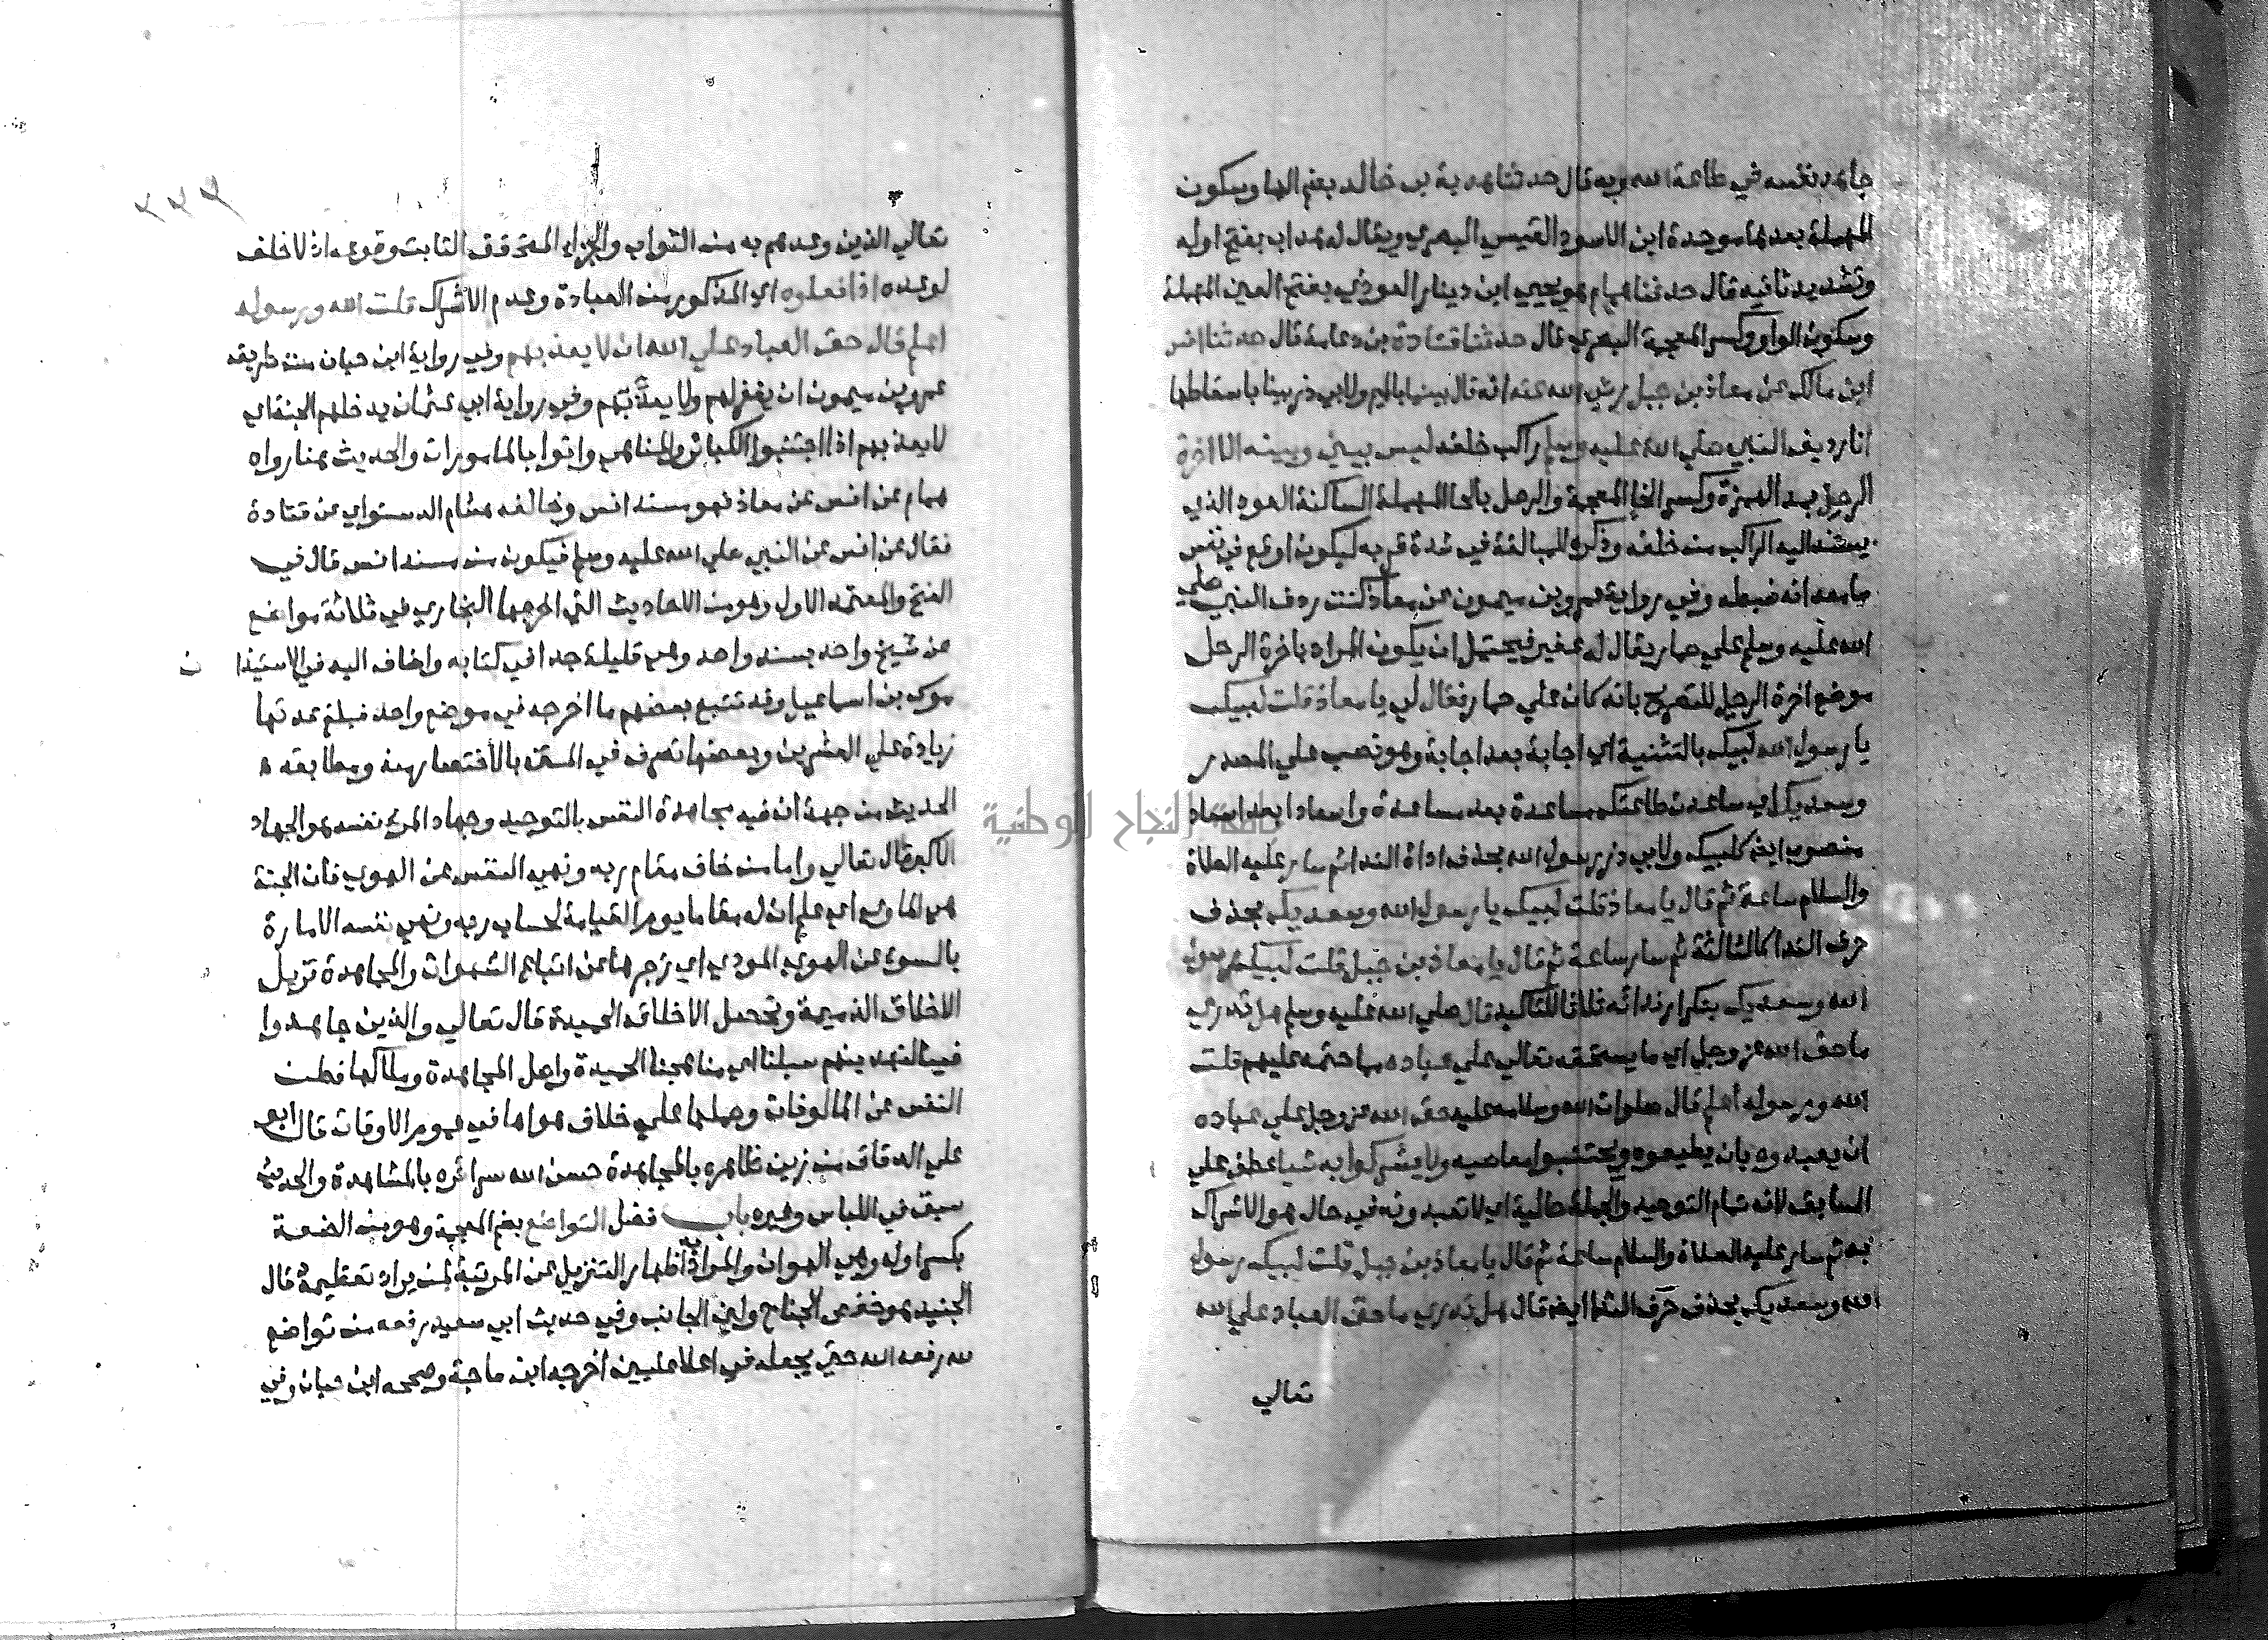 جاهد نفسه في طاعة الله وبه قال حدثنا هدبة بن خالد بضم الها وسكون
المهملة بعدها موحدة ابن الاسود القيسي البصري ويقال له هداب بفتح اوله
وتشديد ثانيه قال حدثنا همام هو يحيي ابن دينار العوذي بفتح العين المهملة
وسكون الواو وكسر المعجمة البصري قال حدثنا قتادة بن دعامة قال حدثنا انس
ابن مالك عن معاذ بن جبل رضي الله عنه انه قال بينما بالميم ولابي ذر بينا باسقاطها
انا رديف النبي صلي الله عليه وسلم راكب خلفه ليس بيني وبينه الا اخرة
الرحل بمد الهمزة وكسر الخا المعجمة والرحل بالحا المهملة الساكنة العود الذي
يستند اليه الراكب من خلفه وذكره للمبالغة في شدة قربه ليكون اوقع في نفس
سامعه انه ضبطه وفي رواية عمرو بن ميمون عن معاذ كنت ردف النبي صلي
الله عليه وسلم علي حمار يقال له عفير فيحتمل ان يكون المراد باخرة الرحل
موضع اخرة الرحل للتصريح بانه كان علي حمار فقال لي يا معاذ قلت لبيك
يا رسول الله لبيك بالتثنية اي اجابة بعد اجابة وهو نصب علي المصدر
وسعديك اي ساعدت طاعتك مساعدة بعد مساعدة واسعادا بعد اسعاد
منصوب ايضا كلبيك ولابي ذر رسول الله بحذف اداة الندا ثم سار عليه الصلاة
والسلام ساعة ثم قال يا معاذ قلت لبيك يا رسول الله وسعديك بحذف
حرف الندا كالثالثة ثم سار ساعة ثم قال يا معاذ بن جبل قلت لبيك رسول
الله وسعديك بتكرار ندائه ثلاثا للتاكيد قال صلي الله عليه وسلم هل تدري
ما حق الله عز وجل اي ما يستحقه تعالي علي عباده مما حتمه عليهم قلت
الله ورسوله اعلم قال صلوات الله وسلامه عليه حق الله عز وجل علي عباده
ان يعبدوه بان يطيعوه ويجتنبوا معاصيه ولا يشركوا به شيا عطف علي
السابق لانه تمام التوحيد والجملة حالية اي لا تعبدونه في حال هو الاشراك
به ثم سار عليه الصلاة والسلام ساعة ثم قال يا معاذ بن جبل قلت لبيك رسول
الله وسعديك بحذف حرف الندا ايضا قال هل تدري ما حق العباد علي الله
تعالي
٢٢٢
تعالي الذين وعدهم به من الثواب والجزاء المتحقق الثابت وقوعه اذ لا خلف
لوعده اذا فعلوه اي المذكور من العبادة وعدم الاشراك قلت الله ورسوله
اعلم قال حق العباد علي الله ان لا يعذبهم وفي رواية ابن حبان من طريق
عمرو بن ميمون ان يغفر لهم ولا يعذبهم وفي رواية ابي عثمان يدخلهم الجنة اي
لا يعذبهم اذا اجتنبوا الكبائر والمناهي واتوا بالمامورات والحديث هنا رواه
همام عن انس عن معاذ فهو مسند انس وخالفه هشام الدستواي عن قتادة
فقال عن انس عن النبي صلي الله عليه وسلم فيكون من مسند انس قال في
الفتح والمعتمد الاول وهو من الاحاديث التي اخرجها البخاري في ثلاثة مواضع
عن شيخ واحد بسند واحد وهي قليلة جدا في كتابه واضاف اليه في الاستيذا ن
موسي بن اسماعيل وقد تتبع بعضهم ما اخرجه في موضع واحد فبلغ عدتها
زيادة علي العشرين وبعضها تصرف في المتن بالاختصار منه ومطابقة
الحديث من جهة ان فيه مجاهدة النفس بالتوحيد وجهاد المرء نفسه هو الجهاد
الاكبر قال تعالي واما من خاف مقام ربه ونهي النفس عن الهوي فان الجنة
هي الماوي اي علم ان له مقاما يوم القيامة لحساب ربه ونهي نفسه الامارة
بالسوء عن الهوي المودي اي زجرها عن اتباع الشهوات والمجاهدة تزيل
الاخلاق الذميمة وتحصل الاخلاق الحميدة قال تعالي والذين جاهدوا
فينا لنهدينهم سبلنا اي مناهجنا الحميدة واصل المجاهدة وملاكها فطم
النفس عن المالوفات وحملها علي خلاف هواها في عموم الاوقات قال ابو
علي الدقاق من زين ظاهره بالمجاهدة حسن الله سرائره بالمشاهدة والحديث
سبق في اللباس وغيره باب فضل التواضع بضم المعجمة وهو من الضعة
بكسر اوله وهي الهوان والمراد به اظهار التنزيل عن المرتبة لمن يراد تعظيمه قال
الجنيد هو خفض الجناح ولين الجانب وفي حديث ابي سعيد رفعه من تواضع
لله رفعه الله حتي يجعله في اعلا عليين اخرجه ابن ماجة وصححه ابن حبان وفي
جامعة النجاح الوطنية